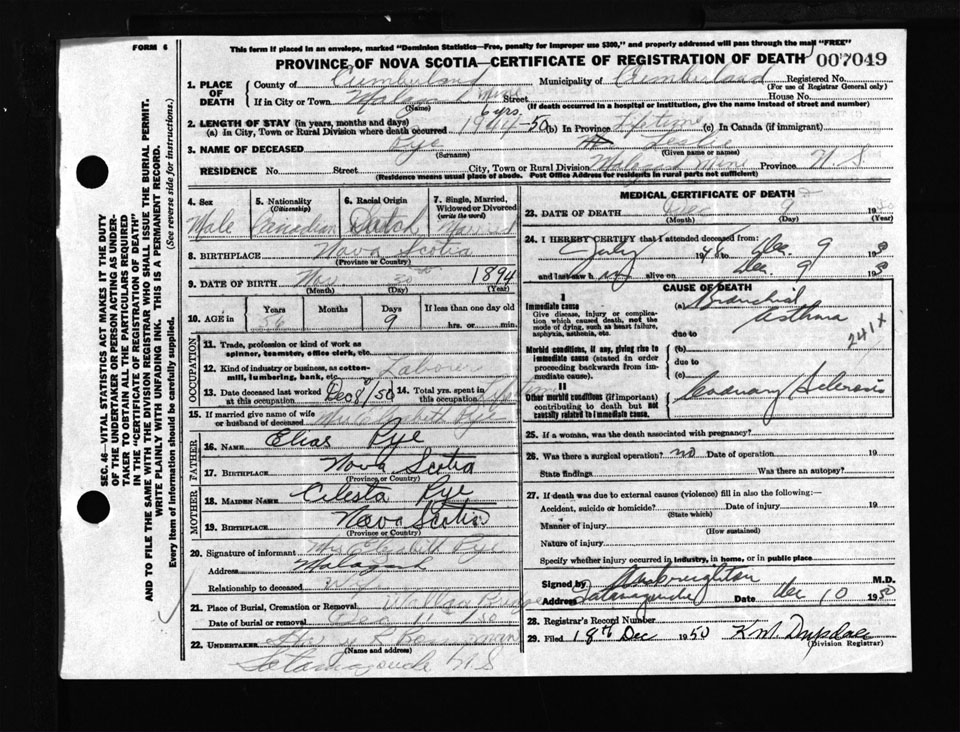 FORM 6
This form if placed in an envelope, marked "Dominion Statistics—Free, penalty for improper use $300," and properly addressed will pass through the mail "FREE"
PROVINCE OF NOVA SCOTIA—CERTIFICATE OF REGISTRATION OF DEATH 007049
1. PLACE OF DEATH County of Cumberland Municipality of Cumberland Registered No.
(For use of Registrar General only)
If in City or Town Malagash Mine Street House No.
(Name) (If death occurred in a hospital or institution, give the name instead of street and number)
2. LENGTH OF STAY (in years, months and days) 6 yrs.
(a) In City, Town or Rural Division where death occurred 1944-50 (b) In Province Lifetime (c) In Canada (if immigrant)
3. NAME OF DECEASED Pye
(Surname) (Given name or names)
RESIDENCE No. Street City, Town or Rural Division Malagash Mine Province N.S.
(Residence means usual place of abode. Post Office Address for residents in rural parts not sufficient)
4. Sex 5. Nationality (Citizenship) 6. Racial Origin 7. Single, Married, Widowed or Divorced (write the word)
Male Canadian Dutch Married
8. BIRTHPLACE Nova Scotia
(Province or Country)
9. DATE OF BIRTH 30th 1894
(Month) (Day) (Year)
10. AGE in Years Months Days If less than one day old
56 9 hrs. or min.
OCCUPATION
11. Trade, profession or kind of work as spinner, teamster, office clerk, etc.
12. Kind of industry or business, as cotton-mill, lumbering, bank, etc. Labour
13. Date deceased last worked at this occupation Dec 8/50 14. Total yrs. spent in this occupation
15. If married give name of wife or husband of deceased Mrs Elizabeth Pye
FATHER
16. NAME Elias Pye
17. BIRTHPLACE Nova Scotia
(Province or Country)
MOTHER
18. MAIDEN NAME Celesta Pye
19. BIRTHPLACE Nova Scotia
(Province or Country)
20. Signature of informant Mrs Elizabeth Pye
Address Malagash
Relationship to deceased Wife
21. Place of Burial, Cremation or Removal
Date of burial or removal Dec 11/50
22. UNDERTAKER
(Name and address)
Tatamagouche N.S
MEDICAL CERTIFICATE OF DEATH
23. DATE OF DEATH Dec 9 1950
(Month) (Day)
24. I HEREBY CERTIFY that I attended deceased from:
July 1948 to Dec. 9 1950
and last saw h alive on Dec. 9 1950
CAUSE OF DEATH
I
Immediate cause
Give disease, injury or complication which caused death, not the mode of dying, such as heart failure, asphyxia, asthenia, etc.
(a) Bronchial Asthma
241X
due to
Morbid conditions, if any, giving rise to immediate cause (stated in order proceeding backwards from immediate cause)
(b)
due to
(c)
II
Other morbid conditions (if important) contributing to death but not causally related to immediate cause.
Coronary Sclerosis
25. If a woman, was the death associated with pregnancy?
26. Was there a surgical operation? no Date of operation 19
State findings Was there an autopsy?
27. If death was due to external causes (violence) fill in also the following:—
Accident, suicide or homicide? Date of injury 19
(State which)
Manner of injury
(How sustained)
Nature of injury
Specify whether injury occurred in industry, in home, or in public place
Signed by Creighton M.D.
Address Tatamagouche Date Dec 10 1950
28. Registrar's Record Number
29. Filed 18th Dec 1950 K.M.
(Division Registrar)
SEC. 46—VITAL STATISTICS ACT MAKES IT THE DUTY OF THE UNDERTAKER OR PERSON ACTING AS UNDERTAKER TO OBTAIN ALL THE PARTICULARS REQUIRED IN THE "CERTIFICATE OF REGISTRATION OF DEATH"
AND TO FILE THE SAME WITH THE DIVISION REGISTRAR WHO SHALL ISSUE THE BURIAL PERMIT.
WRITE PLAINLY WITH UNFADING INK. THIS IS A PERMANENT RECORD.
Every item of Information should be carefully supplied. (See reverse side for instructions.)